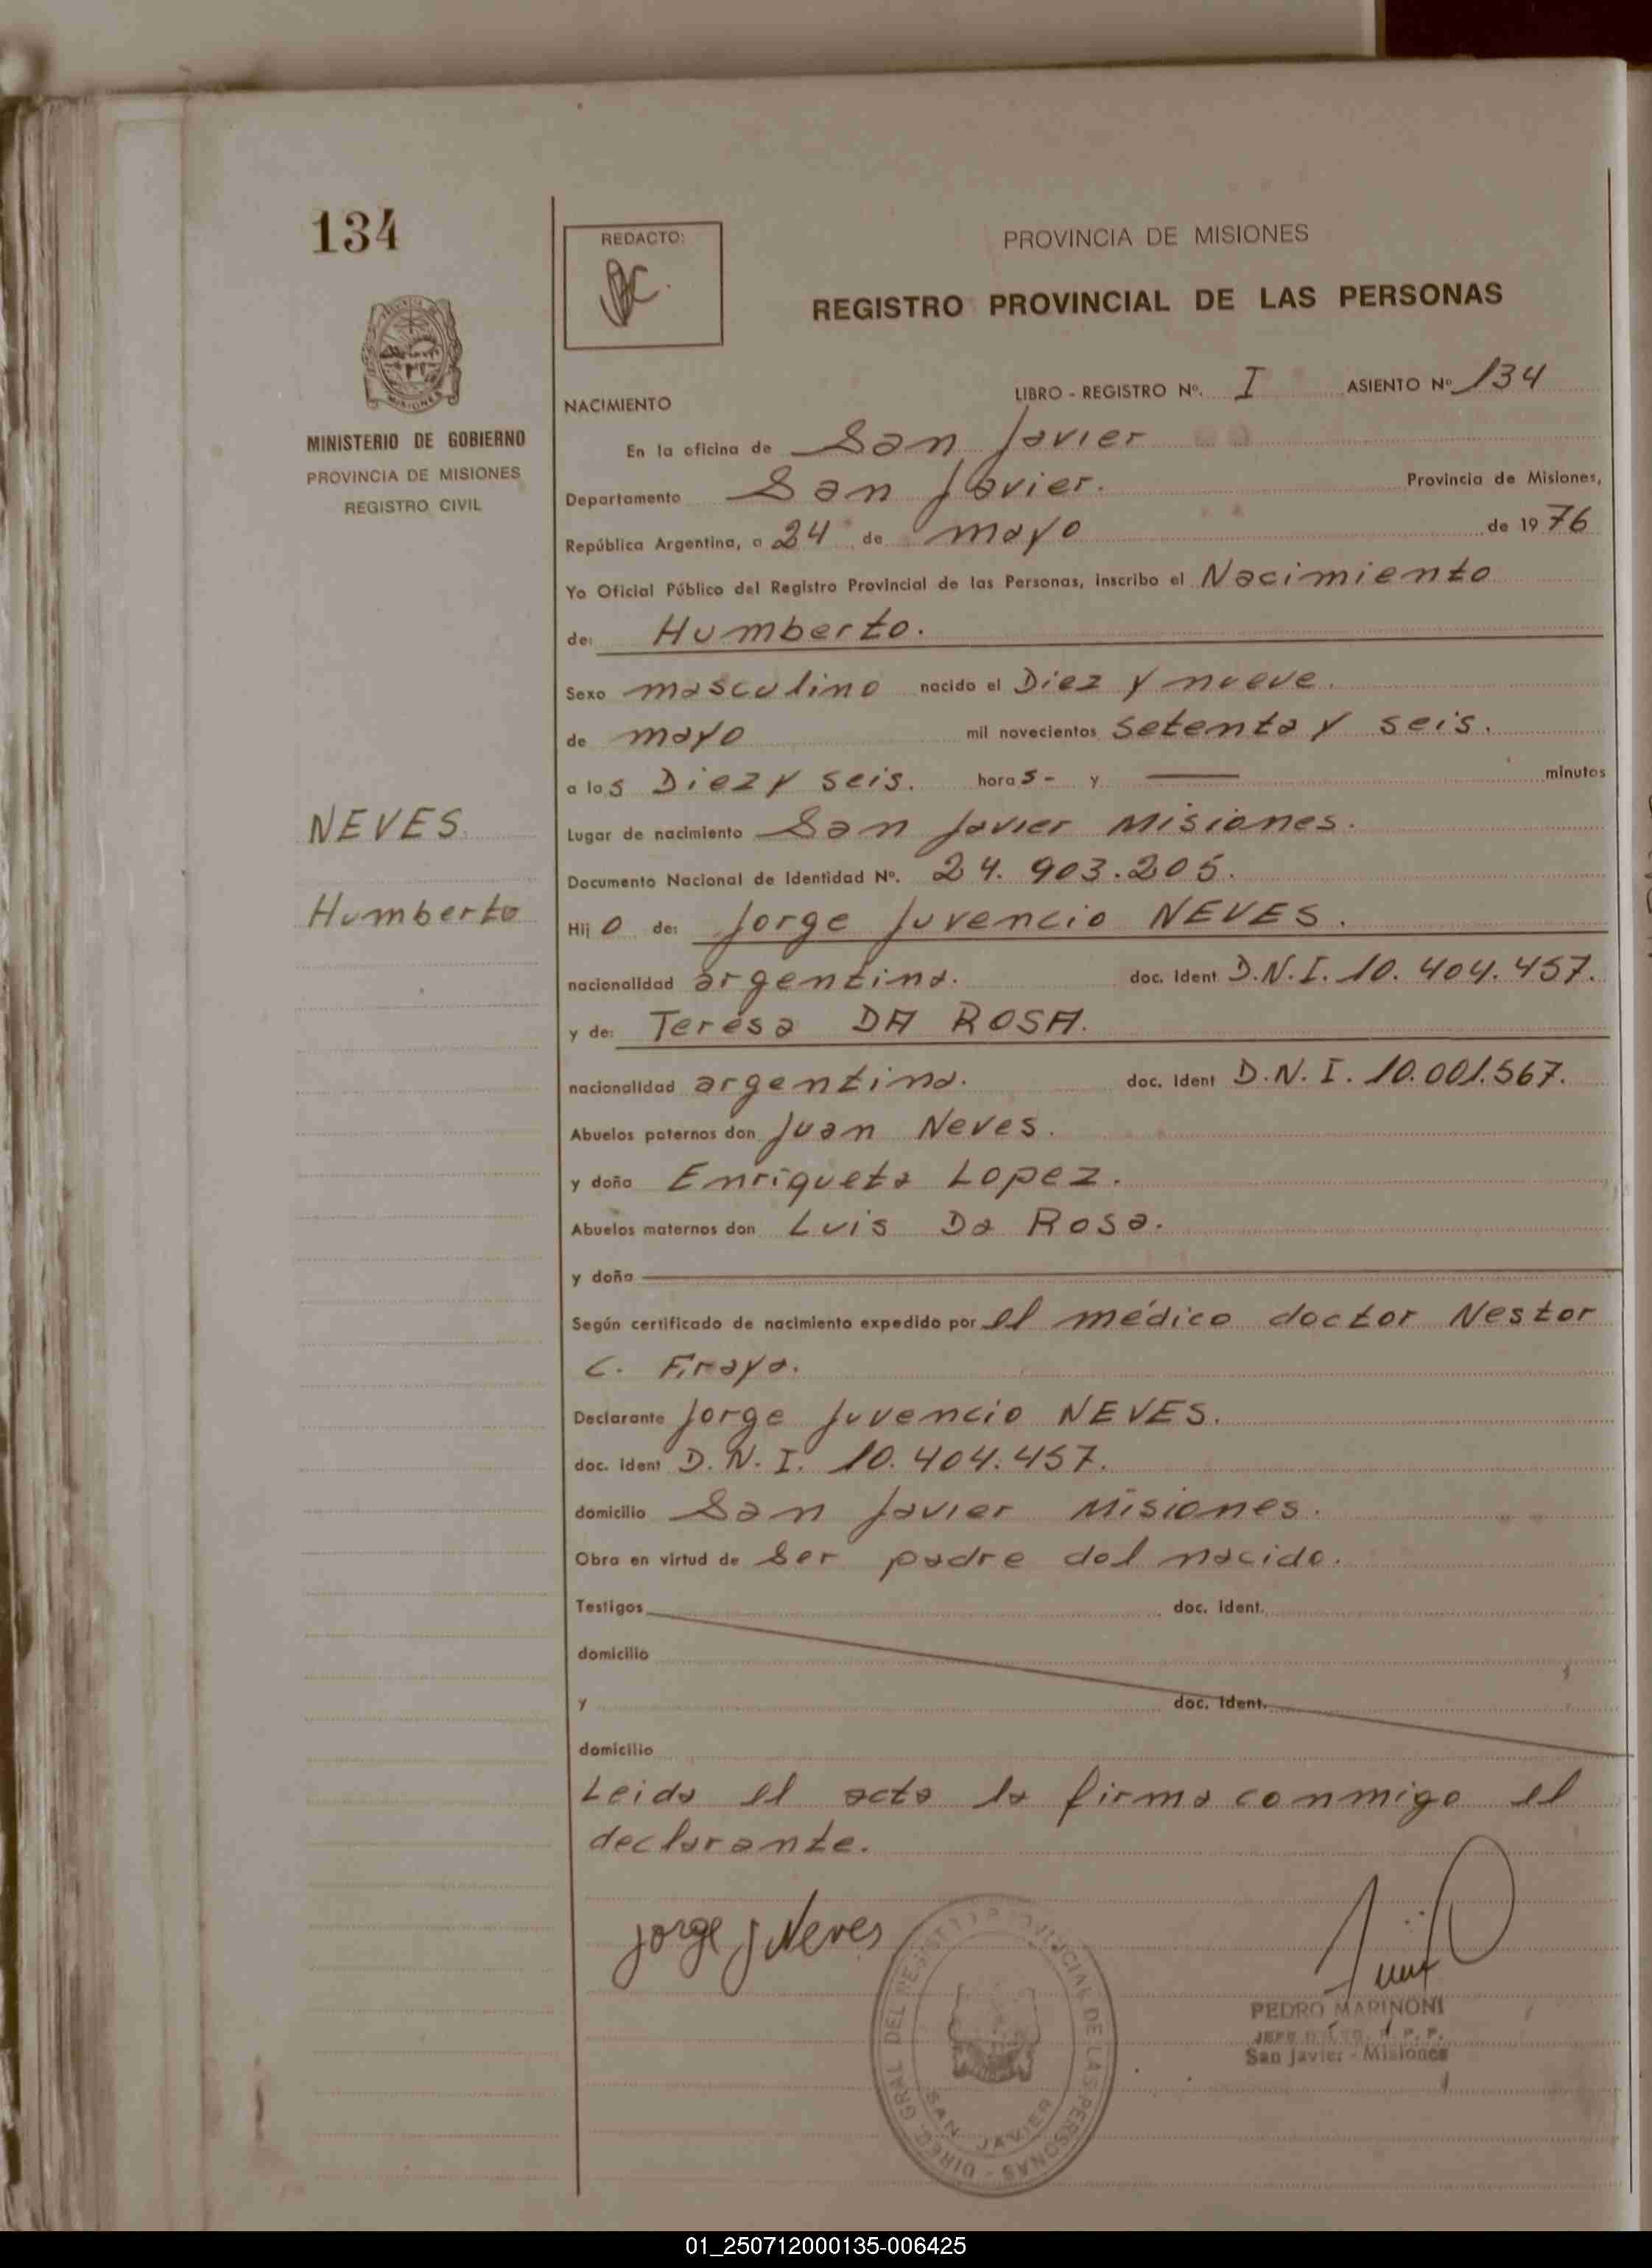 134
MISIONES
MINISTERIO DE GOBIERNO
PROVINCIA DE MISIONES
REGISTRO CIVIL
NEVES
Humberto
REDACTO:
PROVINCIA DE MISIONES
REGISTRO PROVINCIAL DE LAS PERSONAS
LIBRO - REGISTRO Nº. I ASIENTO Nº 134
NACIMIENTO
En la oficina de San Javier
Departamento San Javier. Provincia de Misiones,
República Argentina, a 24 de mayo de 19 76
Yo Oficial Público del Registro Provincial de las Personas, inscribo el Nacimiento
de: Humberto.
Sexo masculino nacido el Diez y nueve.
de mayo mil novecientos setenta y seis.
a los Diez y seis. horas - y — minutos
Lugar de nacimiento San Javier Misiones.
Documento Nacional de Identidad Nº. 24.903.205.
Hijo de: Jorge Juvencio NEVES.
nacionalidad argentina. doc. Ident D.N.I. 10.404.457.
y de: Teresa DA ROSA.
nacionalidad argentina. doc. Ident D.N.I. 10.001.567.
Abuelos paternos don Juan Neves.
y doña Enriqueta Lopez.
Abuelos maternos don Luis Da Rosa.
y doña
Según certificado de nacimiento expedido por el médico doctor Nestor
C. Firaya.
Declarante Jorge Juvencio NEVES.
doc. ident D.N.I. 10.404.457.
domicilio San Javier Misiones.
Obra en virtud de ser padre del nacido.
Testigos doc. ident.
domicilio
y doc. ident.
domicilio
Leida el acta la firma conmigo el
declarante.
Jorge J Neves
DIREC. GRAL DEL REGISTRO PROVINCIAL DE LAS PERSONAS -
SAN JAVIER
PEDRO MARINONI
JEFE R. P. P.
San Javier - Misiones
01_250712000135-006425